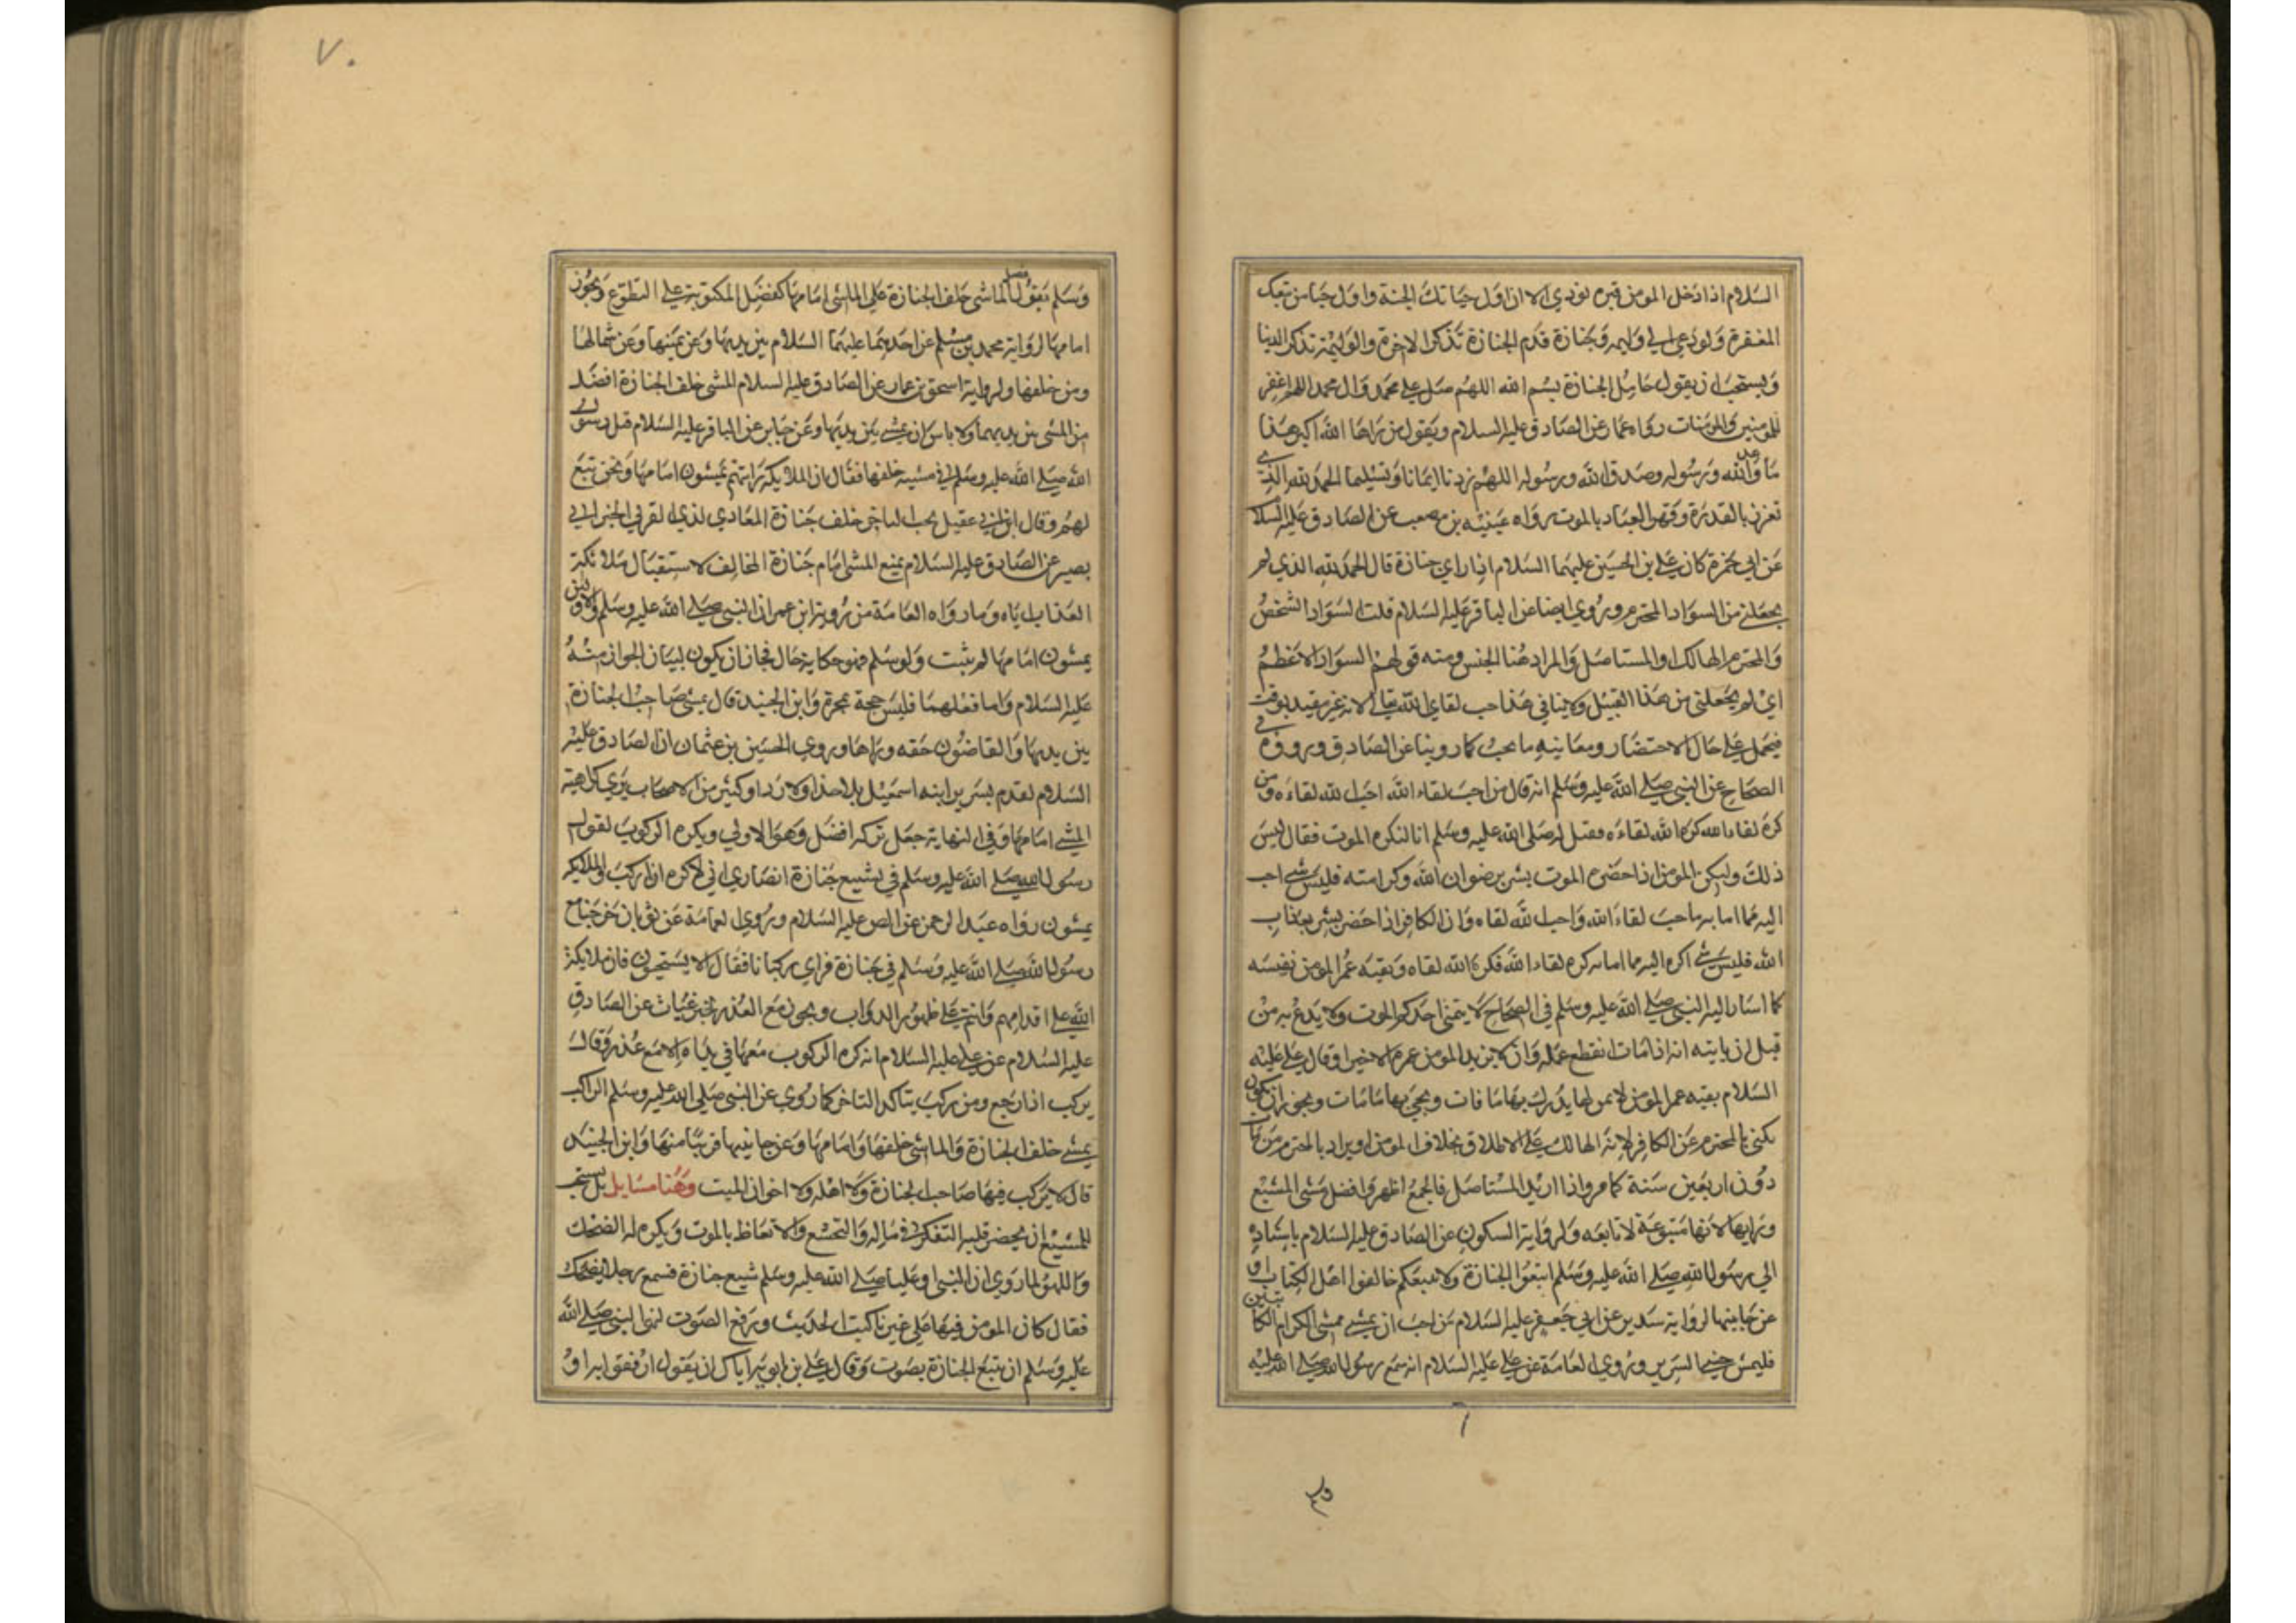 السلام اذا دخل المومن قبره نودي الا ان اول حبائك الجنة واول حبا من تبعك
المغفرة ولو دعي الي وليمه وجنازة قدم الجنازة تذكر الاخرة والوليمة تذكر الدنيا
ويستحب ان يقول حامل الجنازة بسم الله اللهم صل علي محمد وال محمد اللهم اغفر
للمومنين والمومنات رواه عمار عن الصادق عليه السلام ويقول من راها الله اكبر هذا
ما وعد الله ورسوله وصدق الله ورسوله اللهم زدنا ايمانا وتسليما الحمد لله الذي
تعزز بالقدرة وقهر العباد بالموت رواه عنبسه بن مصعب عن الصادق عليه السلا
عن ابي حمزة كان علي بن الحسين عليهما السلام اذا راي جنازة قال الحمد لله الذي لم
يجعلني من السواد المخترم وروي ايضا عن الباقر عليه السلام قلت السواد الشخص
والمخترم الهالك او المستاصل والمراد هنا الجنس ومنه قولهم السواد الاعظم
اي لم يجعلني من هذا القبيل ولا ينافي هذا حب لقاي الله تعالي لانه غير مقيد بوقت
فيحمل علي حال الاحتضار ومعاينه ما يحب كما روينا عن الصادق ورووه في
الصحاح عن النبي صلي الله عليه وسلم انه قال من احب لقاء الله احب الله لقاءه ومن
كره لقاء الله كره الله لقاءه فقيل له صلي الله عليه وسلم انا لنكره الموت فقال ليس
ذلك ولكن المومن اذا حضره الموت بشر برضوان الله وكرامته فليس شي احب
اليه مما امامه فاحب لقاء الله واحب الله لقاه وان الكافر اذا حضر بشر بعذاب
الله فليس شي اكره اليه مما امامه كره لقاء الله فكره الله لقاه وبقيه عمر المومن نفيسه
كما اشار اليه النبي صلي الله عليه وسلم في الصحاح لا يتمني احدكم الموت ولا يدع به من
قبل ان ياتيه انه اذا مات انقطع عمله وانه لا يزيد المومن عمره الا خيرا وقال علي عليه
السلام بقيه عمر المومن لا ثمن لها يدرك بها ما فات ويحي بها ما مات ويجوز ان يكون
يكني بالمخترم عن الكافر لانه الهالك علي الاطلاق بخلاف المومن او يراد بالمخترم من مات
دون اربعين سنة كما مر واذا اريد المستاصل فالجمع اظهر وافضل مشي المشيع
وراها لانها متبوعة لا تابعه ولرواية السكوني عن الصادق عليه السلام باسناده
الي رسول الله صلي الله عليه وسلم اتبعوا الجنازة ولا تتبعكم خالفوا اهل الكتاب او
عن جانبيها لرواية سدير عن ابي جعفر عليه السلام من احب ان يمشي ممشي الكرام الكاتبين
فليمش جنبي السرير وروي العامة عن علي عليه السلام انه سمع رسول الله صلي الله عليه
وسلم يقول فضل الماشي خلف الجنازة علي الماشي امامها كفضل المكتوبة علي التطوع ويجوز
امامها لرواية محمد بن مسلم عن احدهما عليهما السلام بين يديها وعن يمينها وعن شمالها
ومن خلفها ولرواية اسحق بن عمار عن الصادق عليه السلام المشي خلف الجنازة افضل
من المشي بين يديها ولا باس ان يمشي بين يديها وعن جابر عن الباقر عليه السلام قيل لرسول
الله صلي الله عليه وسلم في مشيه خلفها فقال ان الملايكة رايتهم يمشون امامها ونحن تبع
لهم وقال ابن ابي عقيل يجب التاخر خلف جنازة المعادي لذي القربي لخبر ابي
بصير عن الصادق عليه السلام بمنع المشي امام جنازة المخالف لاستقبال ملائكة
العذاب اياه وما رواه العامة من روية ابن عمر ان النبي صلي الله عليه وسلم والاولين
يمشون امامها لم يثبت ولو سلم فهو حكاية حال فجاز ان يكون لبيان الجواز منه
عليه السلام واما فعلهما فليس حجة وابن الجنيد قال يمشي صاحب الجنازة
بين يديها والقاضون حقه وراها وروي الحسين بن عثمان ان الصادق عليه
السلام تقدم سرير ابنه اسمعيل بلا حذا ولا رداء وكثير من الاصحاب يري كراهية
المشي امامها وفي النهاية جعل تركه افضل وهو الاولي ويكره الركوب لقول
رسول الله صلي الله عليه وسلم في تشييع جنازة انصاري اني لاكره ان اركب والملايكة
يمشون رواه عبد الرحمن عن الص عليه السلام وروي العامة عن ثوبان خرج مع
رسول الله صلي الله عليه وسلم في جنازة فراي ركبانا فقال الا يستحيون فان ملايكة
الله علي اقدامهم وانتم علي ظهور الدواب ويجوز مع العذر لخبر غياث عن الصادق
عليه السلام عن علي عليه السلام انه كره الركوب معها في بداه الا مع عذر وقال
يركب اذا رجع ومن ركب يتاكد التاخر كما روي عن النبي صلي الله عليه وسلم الراكب
يمشي خلف الجنازة والماشي خلفها وامامها وعن جانبيها قريبا منها وابن الجنيد
قال لا يركب فيها صاحب الجنازة ولا اهله ولا اخوان الميت وهنا مسايل بل يستحب
للمشيع ان يحضر قلبه التفكر في ماله والتخشع والاتعاظ بالموت ويكره له الضحك
واللهو لما روي ان النبي او عليا صلي الله عليه وسلم شيع جنازة فسمع رجلا يضحك
فقال كان الموت فيها علي غيرنا كتب الحديث ورفع الصوت لنهي النبي صلي الله
عليه وسلم ان تتبع الجنازة بصوت وقال علي بن بابويه اياك ان يقول ارفقوا به او
٧٠